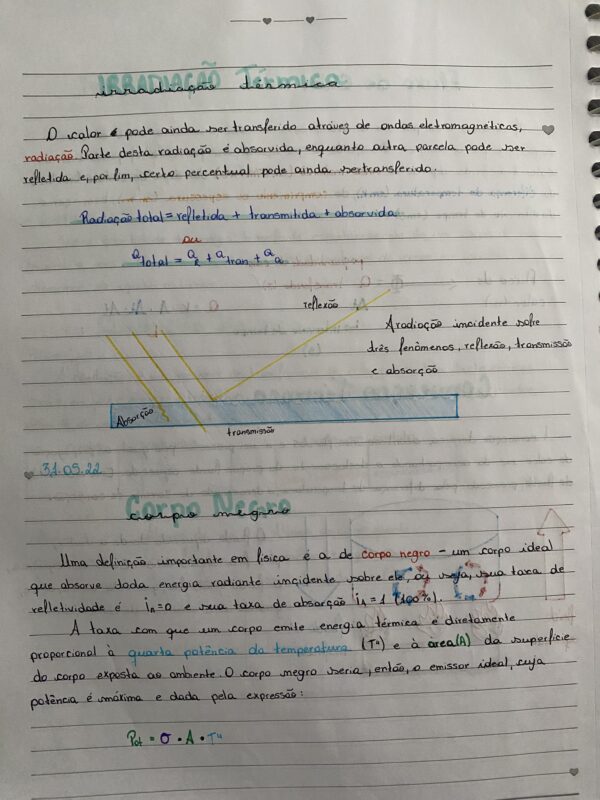 IRRADIAÇÃO TÉRMICA
irradiação térmica
O calor é pode ainda ser transferido atravéz de ondas eletromagnéticas,
radiação. Parte desta radiação é absorvida, enquanto outra parcela pode ser
refletida e, por fim, certo percentual pode ainda sertransferido.
Radiação total = refletida + transmitida + absorvida
ou
Qtotal = QR + Qtran + Qa
reflexão
A radiação incidente sofre
três fenômenos, reflexão, transmissão
e absorção
Absorção
transmissão
31.05.22
Corpo Negro
corpo negro
Uma definição importante em física é a de corpo negro - um corpo ideal
que absorve toda energia radiante incidente sobre ele, ou seja, sua taxa de
refletividade é iR=0 e sua taxa de absorção iA=1 (100%).
A taxa com que um corpo emite energia térmica é diretamente
proporcional à quarta potência da temperatura (T⁴) e à área(A) da superfície
do corpo exposta ao ambiente. O corpo negro seria, então, o emissor ideal, cuja
potência é máxima e dada pela expressão:
Pot = σ • A • T⁴